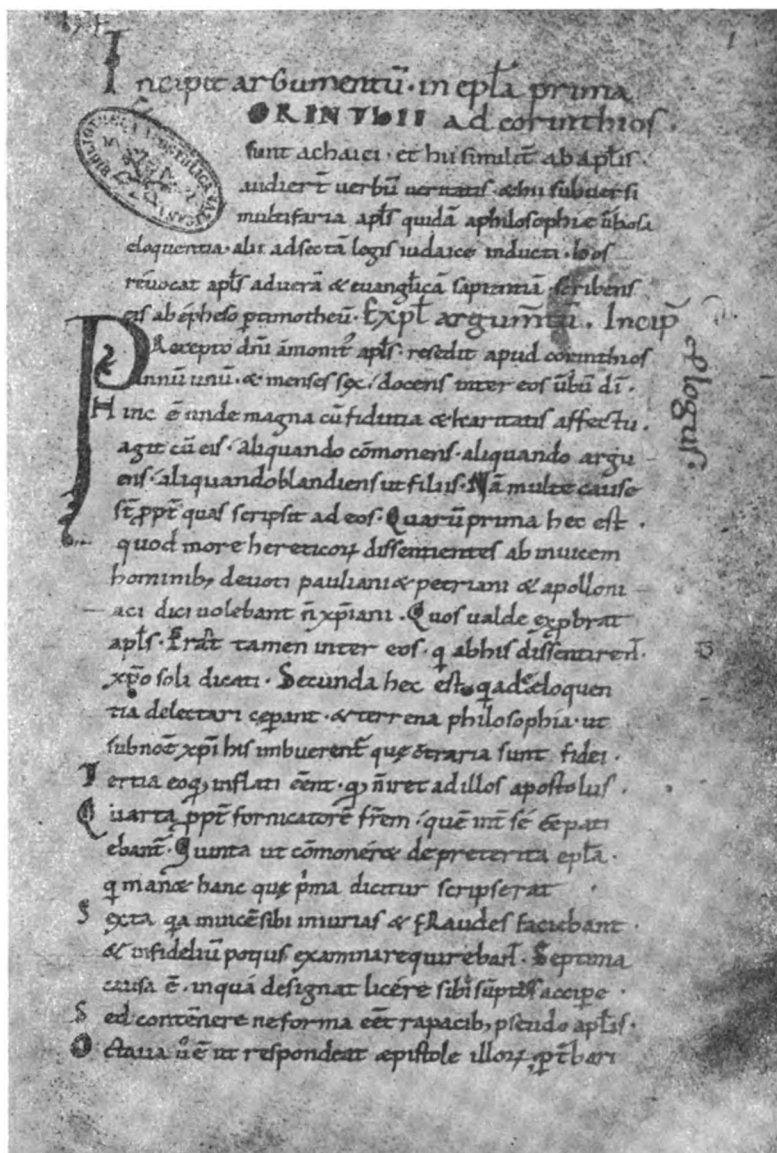 1
Incipit argumentū · in epl̄a prima
ORINTHII ad corinthios ·
sunt achaici · et hii similit̄ ab apl̄is
audiert̄ uerbū ueritatis · & hii subuersi
multifaria apl̄s quidā a philosophie ūbosa
eloquentia · alii ad sectā legis iudaice inducti · hos
reuocat apl̄s ad uerā & euangl̄icā sapientiā · scribens
eis ab epheso p timotheū · Expl̄ argum̄tū . Incip̄
plogus ·
PRecepto dn̄i āmonit᷒ apl̄s · resedit apud corinthios
annū unū · & menses sex / docens inter eos ūbū dī ·
Hinc ē unde magna cū fidutia & karitatis affectu ·
agit cū eis / aliquando cōmonens · aliquando argu
ens / aliquando blandiens ut filius · Nā multe cause
st̄ ppt̄ quas scripsit ad eos · Quarū prima hec est ·
quod more hereticoꝝ dissentientes ab inuicem
hominib; deuoti pauliani & petriani & apolloni
aci dici uolebant n̄ xp̄iani · Quos ualde expbrat
apl̄s · Erant tamen inter eos · q ab his dissentirent̄ ·
xp̄o soli dicati · Secunda hec est · qa eloquen
tia delectari cęperant · & terrena philosophia · ut
sub noīe xp̄i his imbuerent̄ quę ōtraria sunt fidei ·
Tertia eo q; inflati eēnt · q; n̄ iret ad illos apostolus ·
Quarta ppt̄ fornicatorē fr̄em / quē int̄ sē eē pati
ebant̄ · Quinta ut cōmoner& de preterita epl̄a ·
q man& hanc quę p̄ma dicitur scripserat ·
Sexta qa inuicē sibi iniurias & fraudes faciebant ·
& infideliū potius examina requirebant̄ · Septima
causa ē · in quá designat licére sibi sūptus accipe
Sed contēnere ne forma eēt rapacib; pseudo apl̄is ·
Octaua ū ē ut respondeat epistole illoꝝ ·